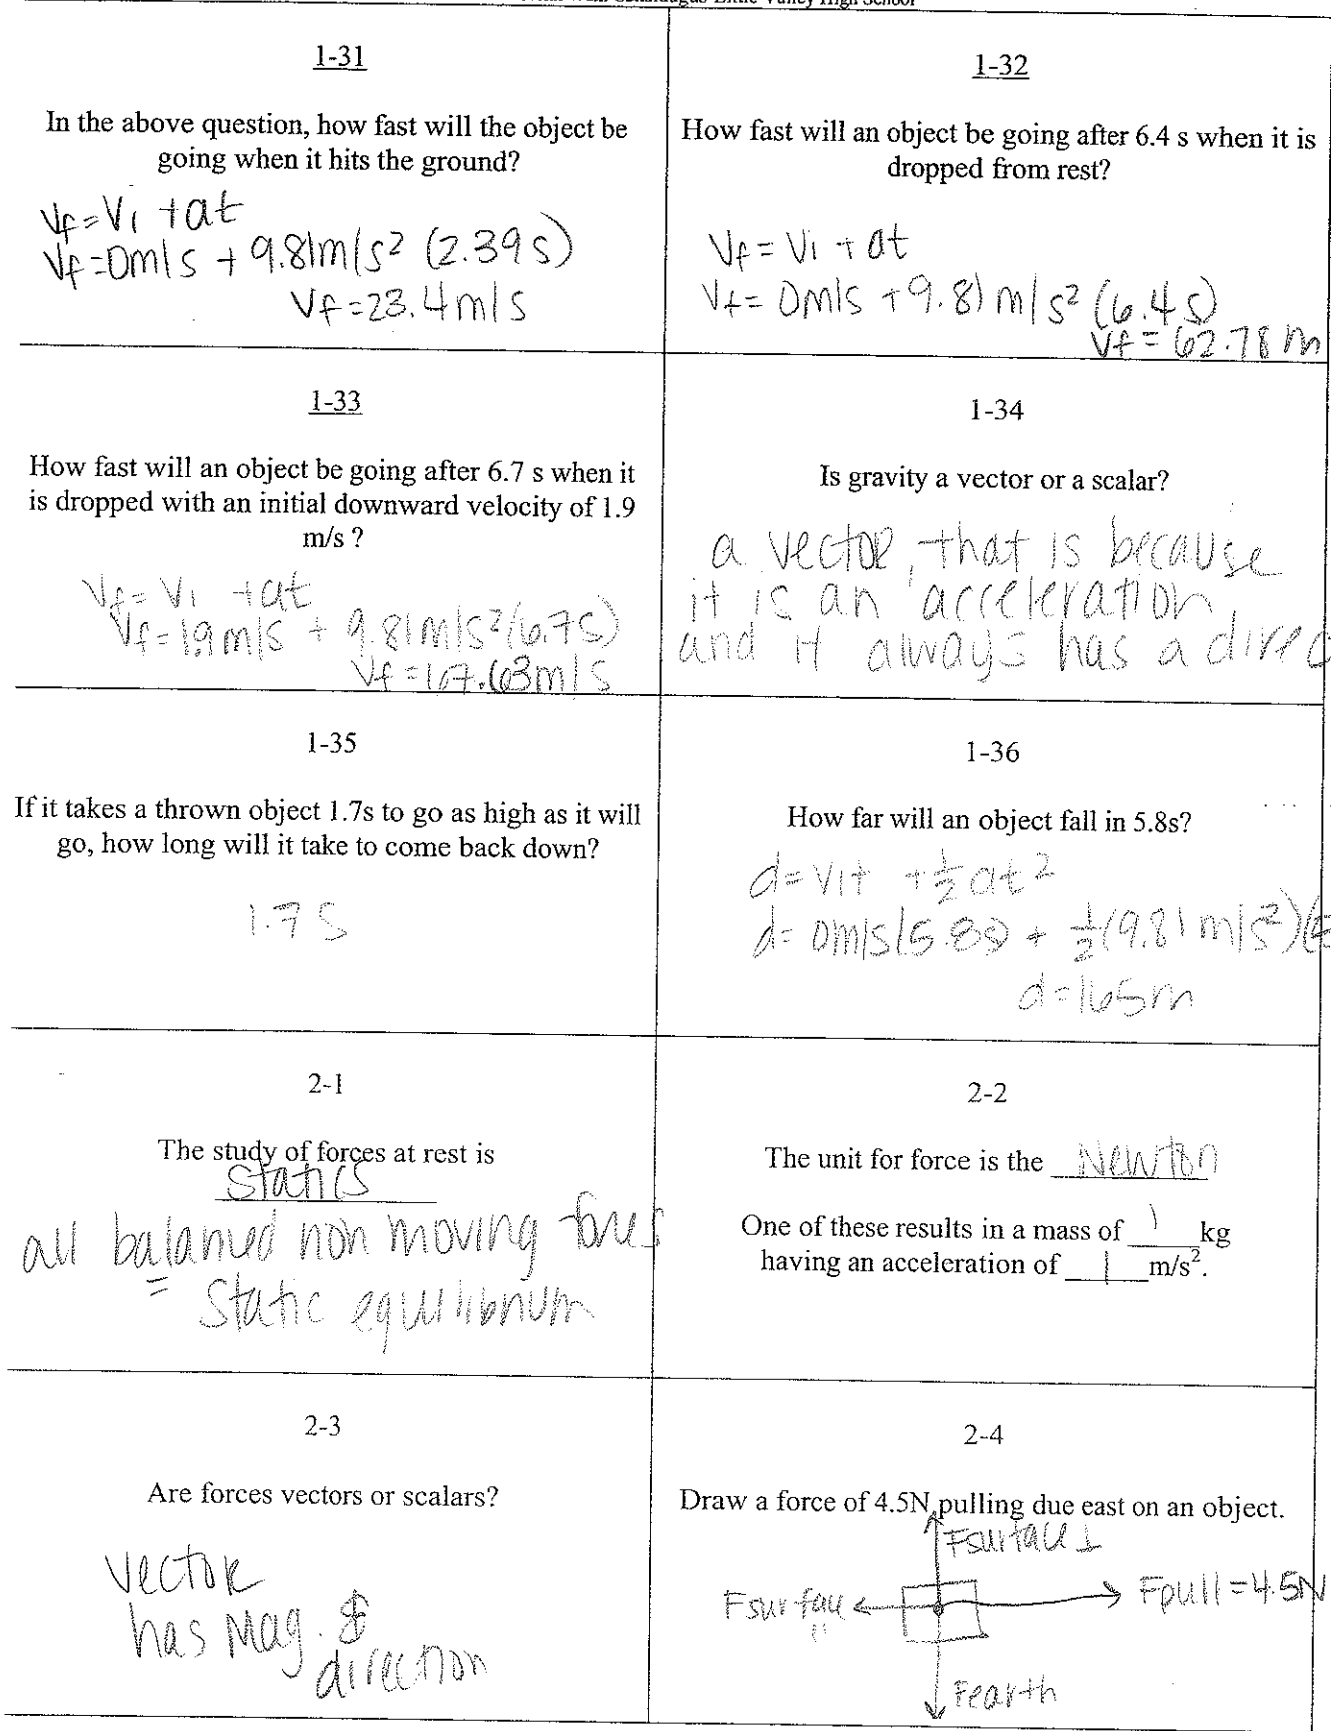 Valley High School
1-31
In the above question, how fast will the object be
going when it hits the ground?
Vf=Vi +at
Vf=0m/s + 9.81m/s² (2.39s)
Vf=23.4m/s
1-32
How fast will an object be going after 6.4 s when it is
dropped from rest?
Vf = Vi + at
Vf= 0m/s +9.81 m/s² (6.4s)
Vf = 62.78 m
1-33
How fast will an object be going after 6.7 s when it
is dropped with an initial downward velocity of 1.9
m/s ?
Vf= Vi +at
Vf=1.9m/s + 9.81m/s²(6.7s)
Vf=67.63m/s
1-34
Is gravity a vector or a scalar?
a vector, that is because
it is an acceleration,
and it always has a direc
1-35
If it takes a thrown object 1.7s to go as high as it will
go, how long will it take to come back down?
1.7s
1-36
How far will an object fall in 5.8s?
d=Vit +½at²
d= 0m/s(5.8s) + ½(9.81m/s²)(
d=165m
2-1
The study of forces at rest is
Statics
all balanced non moving forces
= Static equilibrium
2-2
The unit for force is the Newton
One of these results in a mass of 1 kg
having an acceleration of 1 m/s².
2-3
Are forces vectors or scalars?
vector
has Mag. &
direction
2-4
Draw a force of 4.5N pulling due east on an object.
Fsurface ⊥
Fsurface
Fpull=4.5N
Fearth